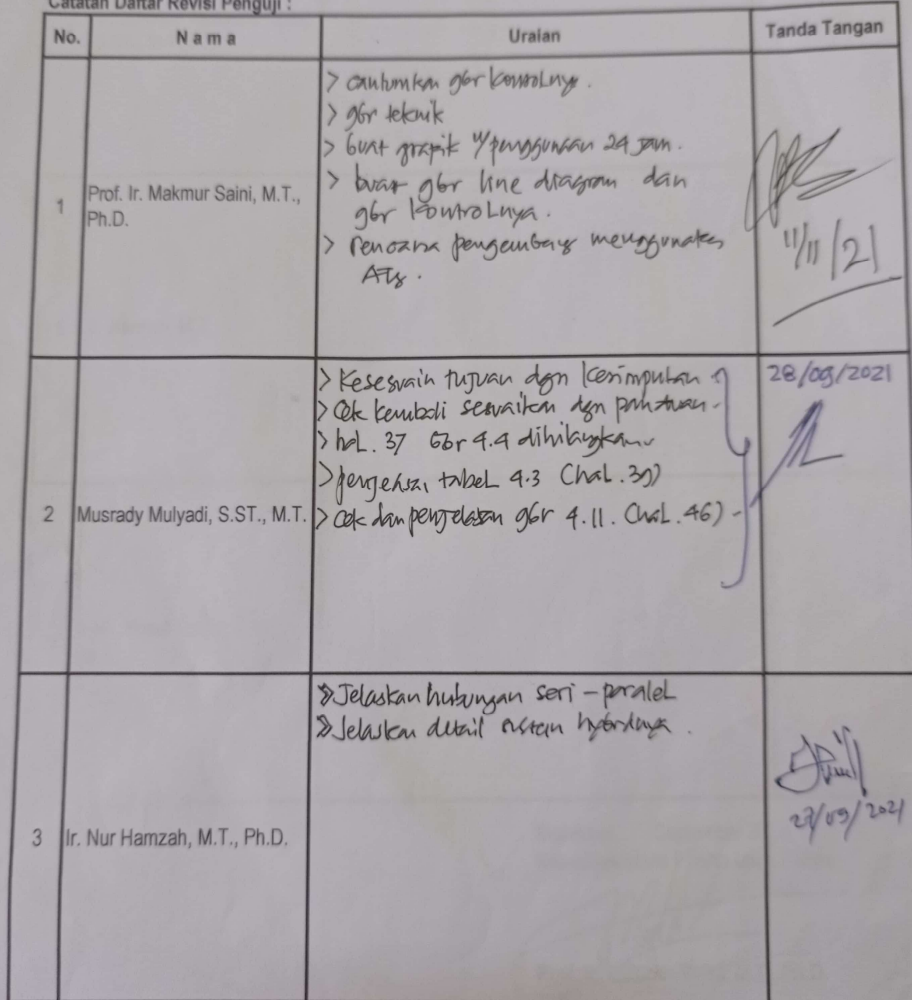 Catatan Daftar Revisi Penguji :
No.
Nama
Uraian
Tanda Tangan
1
Prof. Ir. Makmur Saini, M.T.,
Ph.D.
> cantumkan gbr kontrolnya.
> gbr teknik
> buat grapik u/penggunaan 24 jam.
> buat gbr line diagram dan
gbr kontrolnya.
> rencana pengembang menggunakan
ATS.
11/11/21
2
Musrady Mulyadi, S.ST., M.T.
> Kesesuain tujuan dgn kesimpulan
> Cek kembali sesuaikan dgn panduan
> hal. 37 Gbr 4.4 dihilangkan
> penjelasan tabel 4.3 (hal. 39)
> Cek dan penjelasan gbr 4.11. (hal. 46)
28/09/2021
3
Ir. Nur Hamzah, M.T., Ph.D.
» Jelaskan hubungan seri - paralel
» Jelaskan detail sistem hybridnya.
27/09/2021